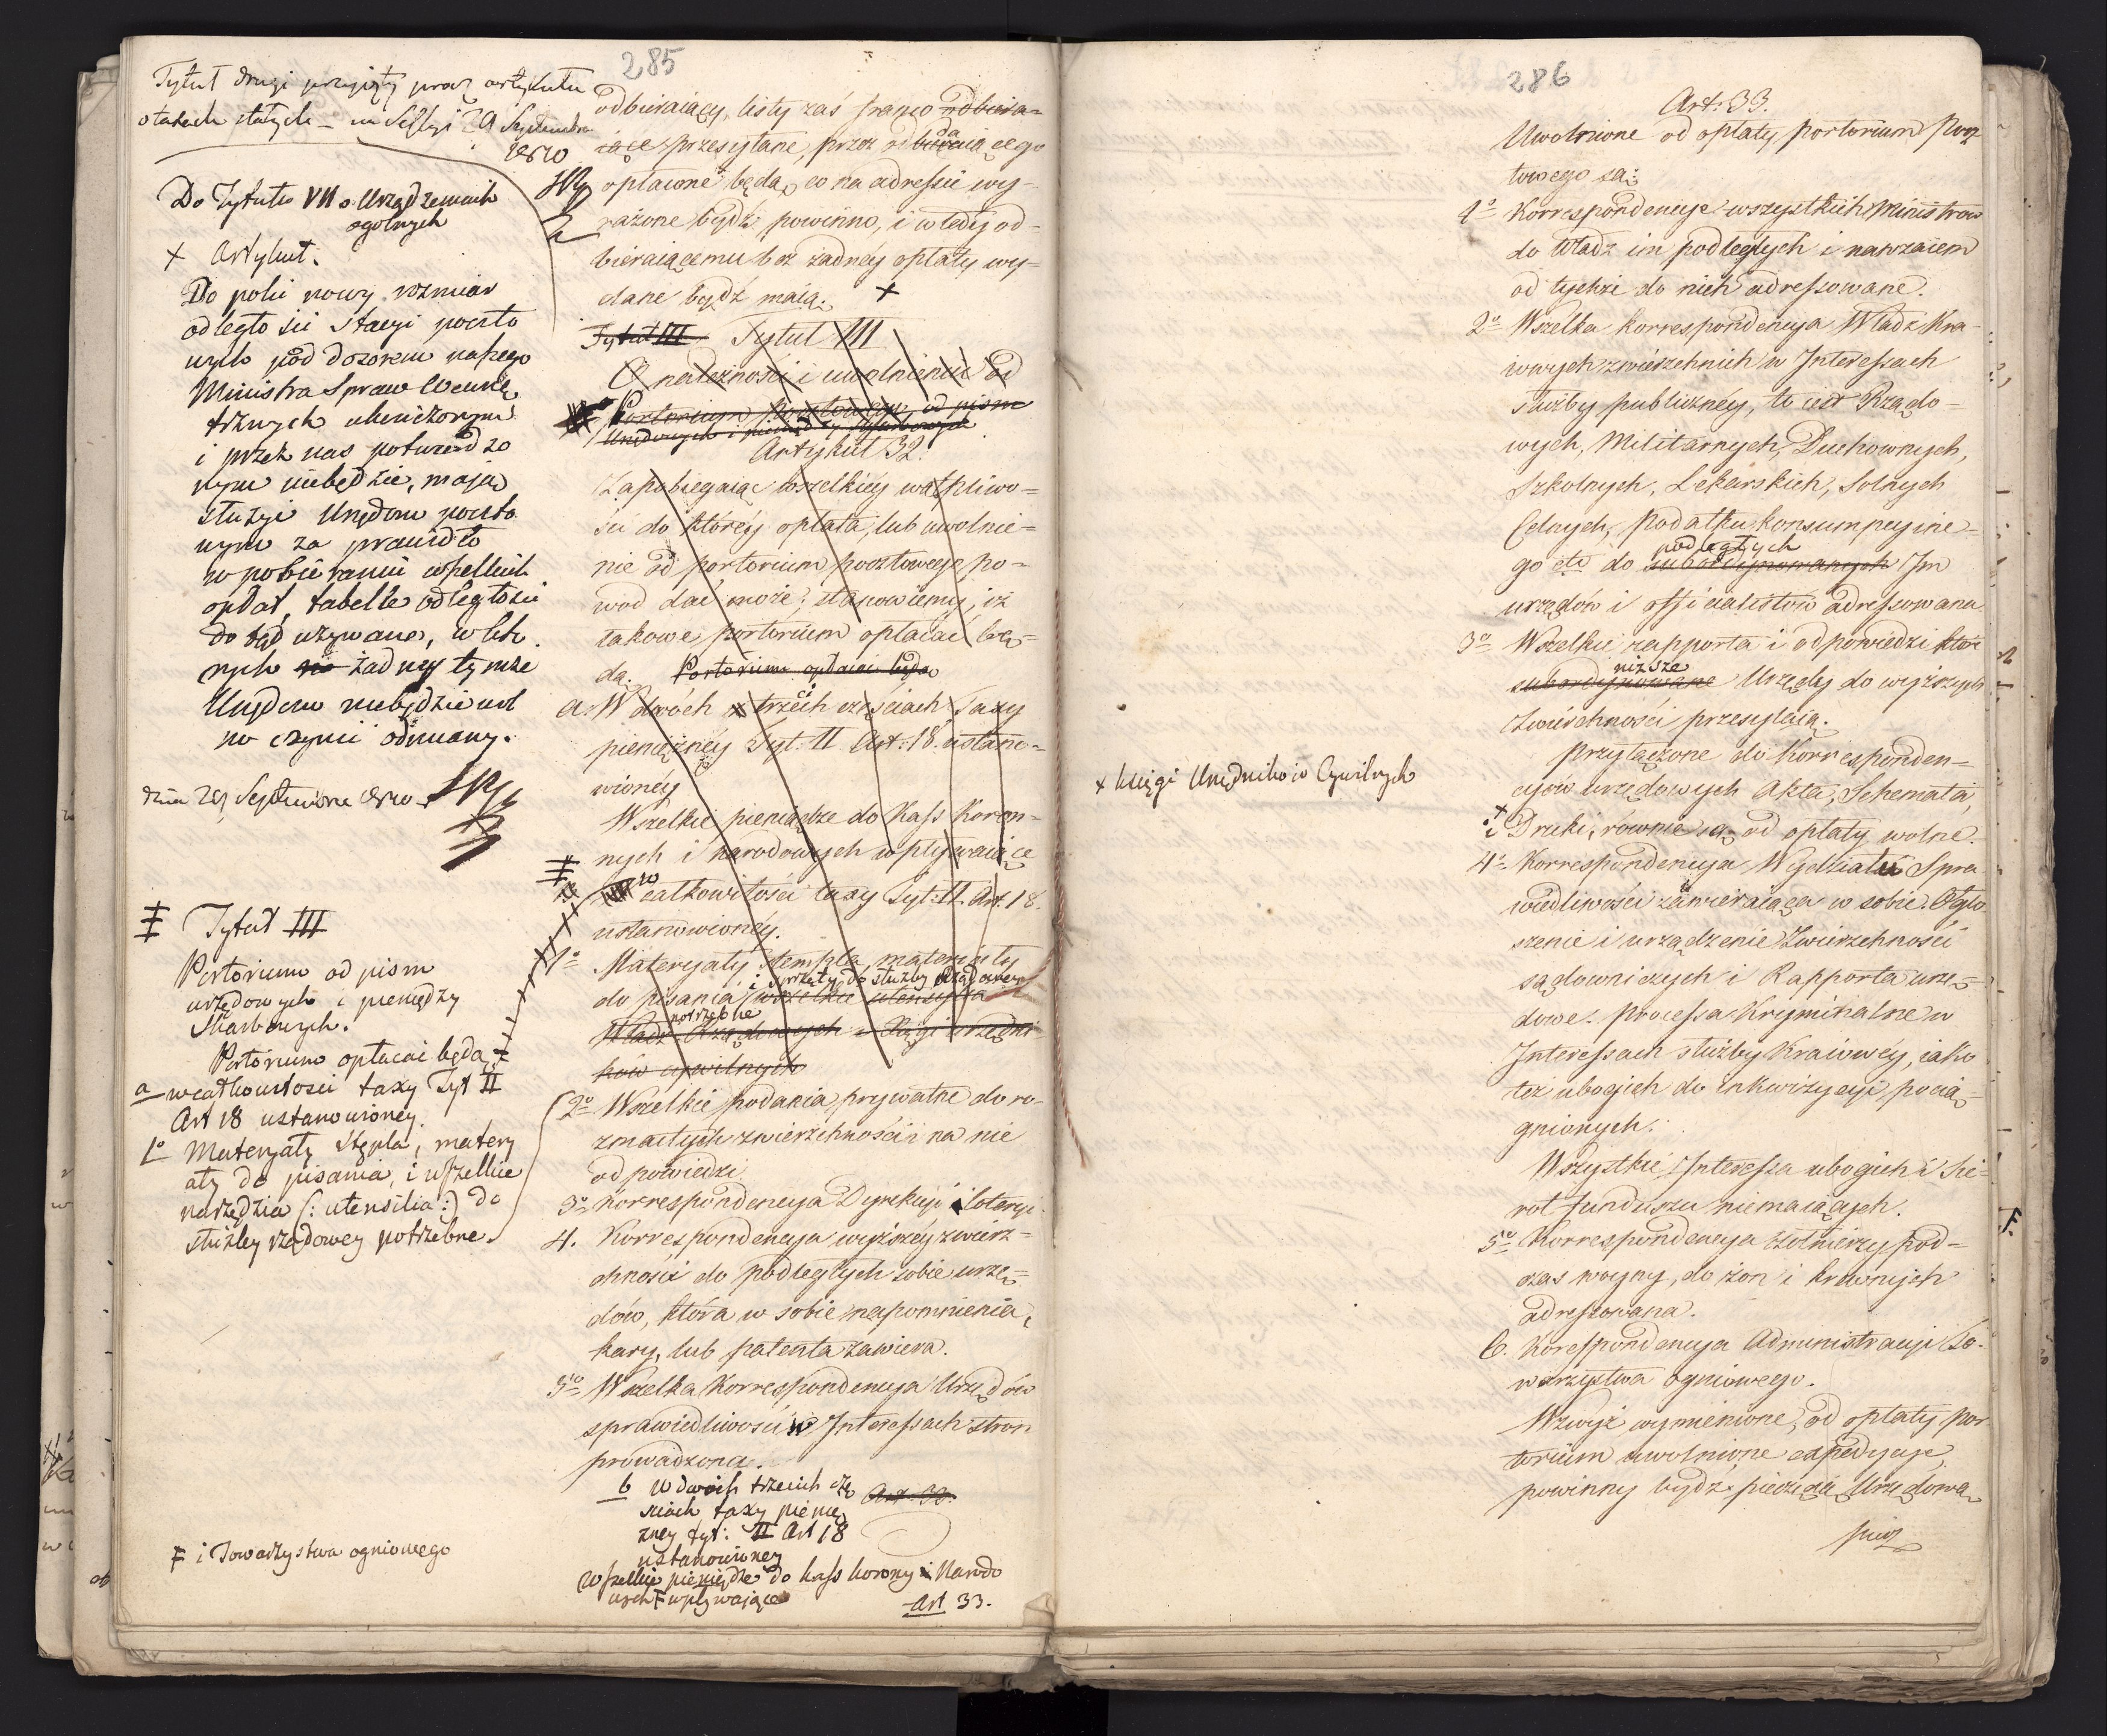 285
Tytuł drugi przyjęty prócz artykułu
o taxach stałych – na Sessyi 29 Septembra
1810
Do Tytułu VII o Urządzeniach
ogolnych
+ Artykuł.
Do poki nowy rozmiar
odległości Stacyi poczto
wych pod dozorem naszego
Ministra Spraw Wewnę
trznych ukończonym
i przez nas potwierdzo
nym niebędzie, mają
służyć Urzędom poczto
wym za prawidło
w pobieraniu wszelkich
opłat, tabelle odległości
do tąd używane, w któ
rych żadney tymże
Urzędom niebędzie wol
no czynić odmiany.
dnia 29 Septembra 1810
‡ Tytuł III
Portorium od pism
urzędowych i pieniędzy
Skarbowych.
Portorium opłacać będą
a w całkowitości taxy Tyt II
Art 18 ustanowioney.
1º Materyały stępla, matery
ały do pisania, i wszelkie
narzędzia (: utensilia :) do
służby rządowey potrzebne.
F i Towarzystwa ogniowego
odbieraiący, listy zaś franco odbiera=
iące przesyłane, przez oddaiącego
opłacone będą, co na adressie wy=
rażone bydź powinno, i wtedy od=
bieraiącemu bez żadnéy opłaty wy=
dane bydź maią. +
Tytuł III Tytuł VIII
O należności i uwolnieniu od
Portorium Pocztowego, od pism
Urzędowych i pieniędzy Skarbowych
Artykuł 32.
Zapobiegaiąc wszelkiéy wątpliwo=
ści do któréy opłata, lub uwolnie=
nie od portorium pocztowego, po=
wod dać może; stanowiemy, iż
takowe portorium opłacać bę=
dą. Portorium opłacać będą
a. W dwóch trzech częściach Taxy
pieniężnéy Tyt: II. Art: 18. ustano=
wionéy
Wszelkie pieniądze do Kass Koron=
nych i narodowych wpływaiące
‡ w całkowitości taxy Tyt: II. Art. 18.
ustanowionéy.
1º Materyały stempla, materyały
i sprzęty do służby Rządowey
do pisania wszelkie utensylia
potrzebne
Władz Rządowych i Księgi urzędni
ków cywilnych
2º Wszelkie podania prywatne do ro=
zmaitych zwierzchności i na nie
odpowiedzi
3º Korrespondencya Dyrekcyi Loteryi
4. Korrespondencya wyższéy zwierz=
chności do podległych sobie urzę=
dów, która w sobie napomnienia,
kary, lub patenta zawiera.
5º Wszelka Korrespondencya Urzędów
sprawiedliwości w Interessach stron
prowadzona.
b W dwóch trzecich czę Art: 33.
ściach taxy pienię
żney tyt: II Art 18
ustanowioney
Wszelkie pieniędze do kass korony i Narodo
wych F wpływające
Art 33.
286
Art: 33.
Uwolnione od opłaty portorium Pocz
towego są:
1º Korrespondencye wszystkich Ministrow
do Władz im podległych i nawzaiem
od tychże do nich adressowane.
2º Wszelka korrespondencya Władz Kra=
iowych zwierzchnich w Interessach
służby publicznéy, to iest Rządo=
wych, Militarnych, Duchownych,
Szkolnych, Lekarskich, Solnych
Celnych, podatku konsumpcyine=
podległych
go etc do subordynowanych Im
urzędów i officialistow adressowana
3º Wszelkie rapporta i odpowiedzi które
niższe
subordynowane Urzędy do wyższych
Zwierzchności przesyłaią.
przyłączone do Korresponden=
cyów urzędowych Akta, Schemata,
+
i Druki, równie są od opłaty wolne.
+ księgi Urzędników Cywilnych
4º Korrespondencya Wydziału Spra
wiedliwości zawieraiąca w sobie Ogło
szenie i urządzenie Zwierzchności
sądowniczych i Rapporta urzę=
dowe. Processa Kryminalne w
Interessach służby Kraiowéy, iako
téż ubogich do inkwizycyi pocią=
gnionych.
Wszystkie Interessa ubogich i sie=
rot funduszu niemaiących.
5º Korrespondencya żołnierzy pod=
czas woyny, do żon i krewnych
adressowana.
6. Korespondencya Administracyi To=
warzystwa ogniowego.
Wzwyż wymienione, od opłaty por
torium uwolnione expedycye,
powinny bydź pieczęcią Urzędową